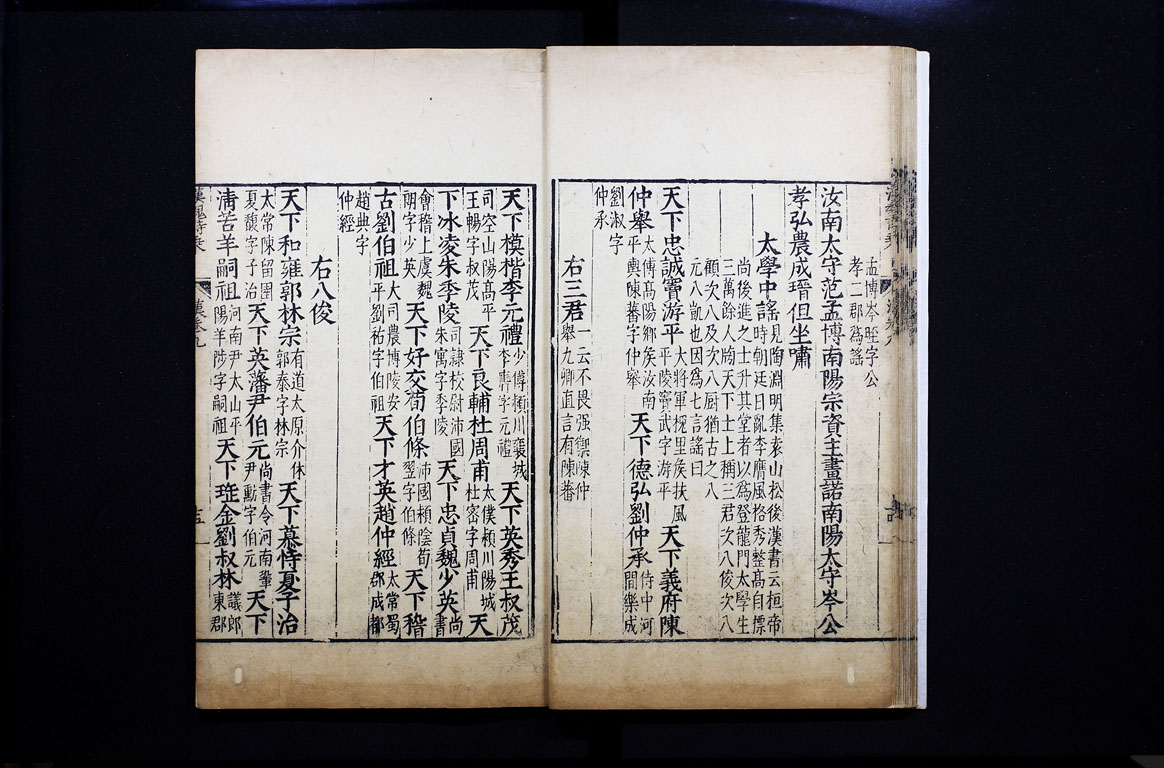 孟博岑晊字公
孝二郡為謠
汝南太守范孟博南陽宗資主畫諾南陽太守岑公
孝弘農成瑨但坐嘯
太學中謠見陶淵明集袁山松後漢書云桓帝
時朝廷日亂李膺風格秀整高自標
尚後進之士升其堂者以為登龍門太學生
三萬餘人牓天下士上稱三君次八俊次八
顧次八及次八厨猶古之八
元八凱也因為七言謠曰
天下忠誠竇游平大將軍槐里侯扶風平陵竇武字游平天下義府陳
仲舉太傅高陽鄉侯汝南平輿陳蕃字仲舉天下德弘劉仲承侍中河間樂成
劉淑字
仲承
右三君一云不畏强禦陳仲
舉九卿直言有陳蕃
天下模楷李元禮少傅潁川襄城李膺字元禮天下英秀王叔茂
司空山陽高平王暢字叔茂天下良輔杜周甫太僕潁川陽城杜密字周甫天
下冰凌朱季陵司隸校尉沛國朱寓字季陵天下忠貞魏少英尚書
會稽上虞魏朗字少英天下好交荀伯條沛國潁陰荀翌字伯條天下稽
古劉伯祖大司農博陵安平劉祐字伯祖天下才英趙仲經太常蜀郡成都
趙典字
仲經
右八俊
天下和雍郭林宗有道太原介休郭泰字林宗天下慕恃夏子治
太常陳留圉夏馥字子治天下英藩尹伯元尚書令河南鞏尹勳字伯元天下
清苦羊嗣祖河南尹太山平陽羊陟字嗣祖天下琟金劉叔林議郎東郡